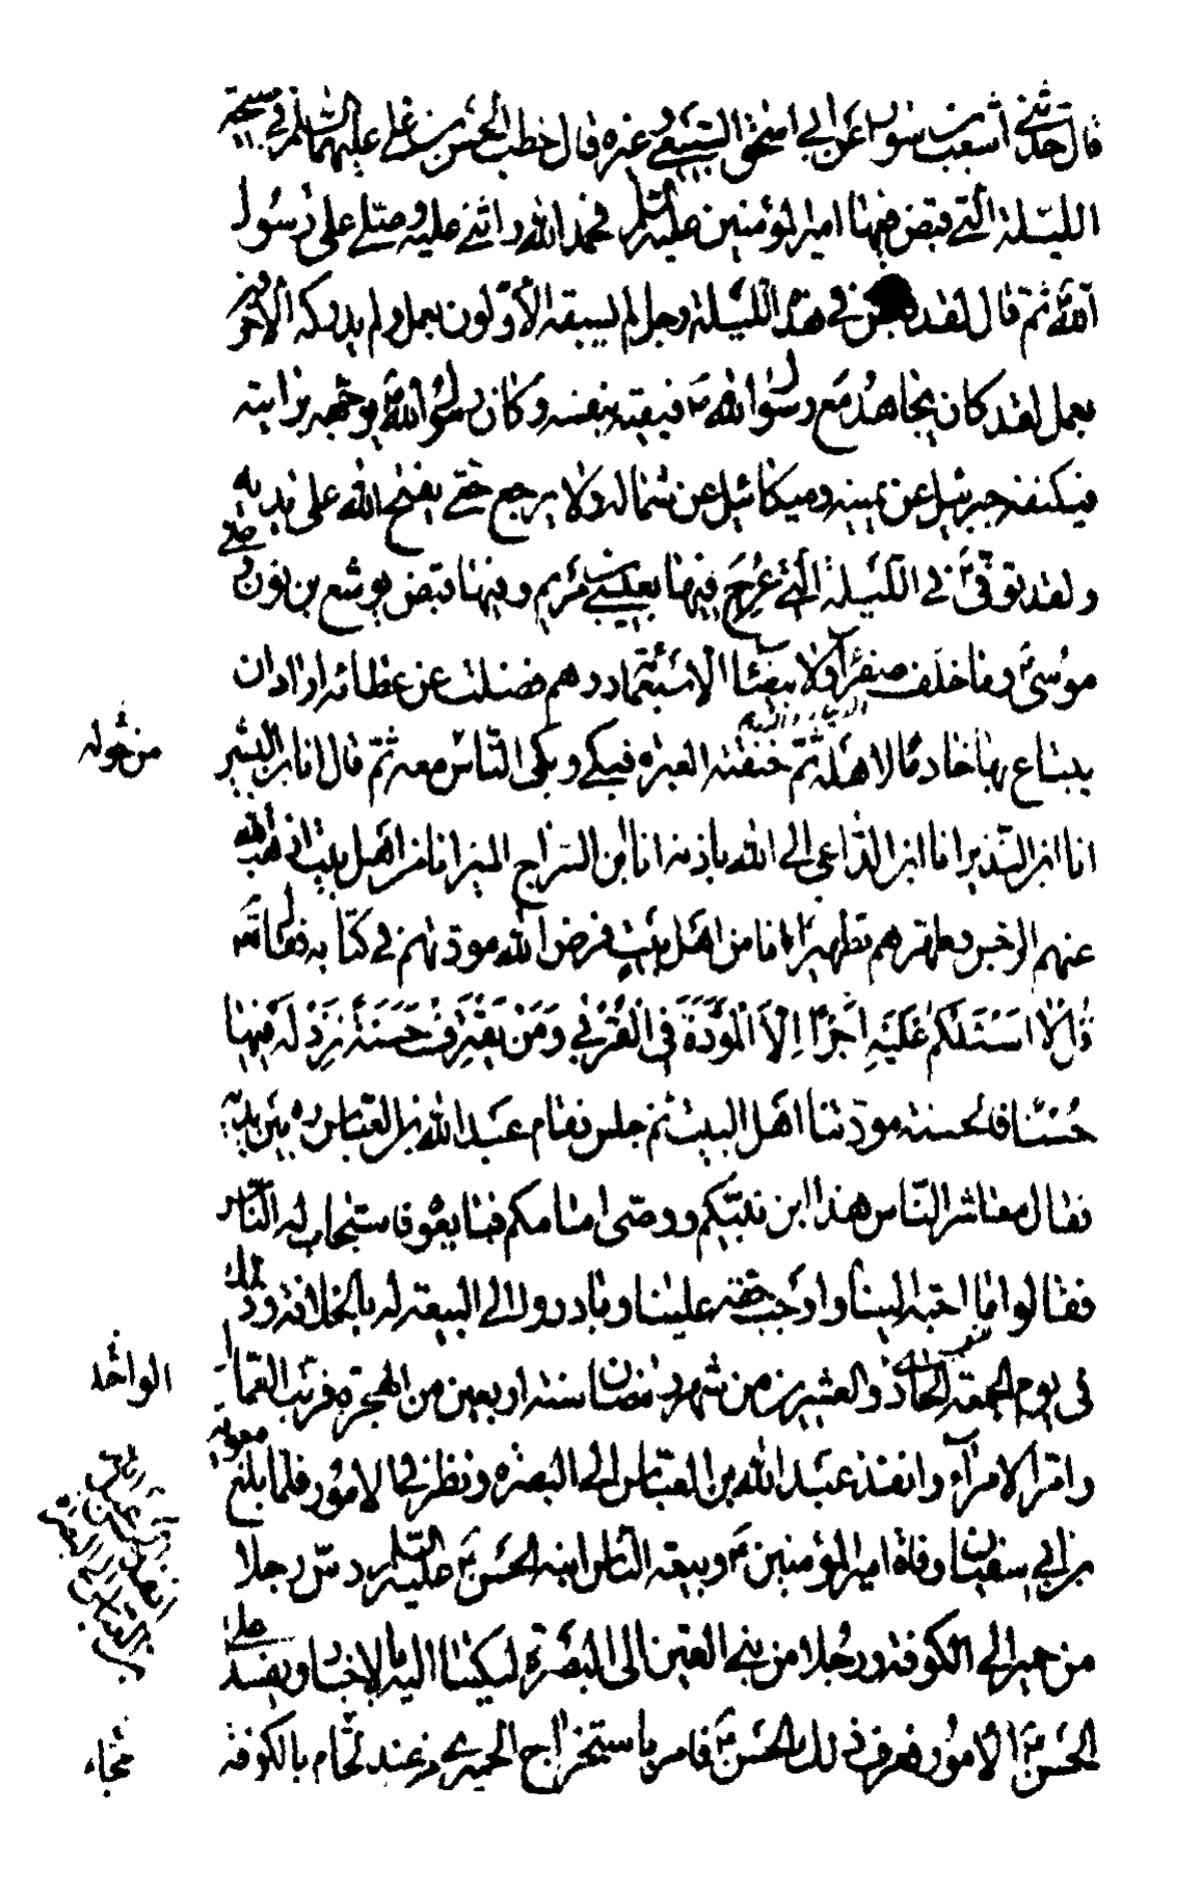 قال حدثني أشعث بن سوار عن أبي اسحق السبيعي وغيره قال خطب الحسن بن علي عليهما السلم في صبيحة
الليلة التي قبض فيها امير المؤمنين عليه السلم فحمد الله واثنى عليه وصلى على رسول
الله ثم قال لقد قبض في هذه الليلة رجل لم يسبقه الأولون بعمل ولم يدركه الآخرون
بعمل لقد كان يجاهد مع رسول الله ص فيقيه بنفسه وكان رسول الله ص يوجهه برايته
فيكنفه جبرئيل عن يمينه وميكائيل عن شماله ولا يرجع حتى يفتح الله على يديه
ولقد توفى ع في الليلة التي عرج فيها بعيسى بن مريم وفيها قبض يوشع بن نون وصي
موسى ع وما خلف صفراء ولا بيضاء الا سبعمائة درهم فضلت عن عطائه اراد ان
يبتاع بها خادما لاهله ثم خنقته العبرة فبكى وبكى الناس معه ثم قال انا ابن البشير
انا ابن النذير انا ابن الداعي الى الله باذنه انا ابن السراج المنير انا من اهل بيت اذهب الله
عنهم الرجس وطهرهم تطهيرا انا من اهل بيت فرض الله مودتهم في كتابه فقال تعالى
قُل لا اسئلكم عليه اجرًا الا المودة في القربى ومن يقترف حسنة نزد له فيها
حسنا فالحسنة مودتنا اهل البيت ثم جلس فقام عبد الله بن العباس ره بين يديه
فقال معاشر الناس هذا ابن نبيكم ووصى امامكم فبايعوه فاستجاب له الناس
فقالوا ما احبه الينا واوجب حقه علينا وبادروا الى البيعة له بالخلافة وذلك
فى يوم الجمعة الحادي والعشرين من شهر رمضان سنة اربعين من الهجرة فرتب العمال
وامر الامراء وانفذ عبد الله بن العباس الى البصرة ونظر في الامور فلما بلغ معوية
بن ابي سفيان وفاة امير المؤمنين ع وبيعة الناس ابنه الحسن ع عليه السلم دس رجلا
من حمير الى الكوفة ورجلا من بني القين الى البصرة ليكتبا اليه بالاخبار ويفسدا على
الحسن ع الأمور فعرف ذلك الحسن ع فامر باستخراج الحميري من عند حجام بالكوفة
من خوله
الواحد
حجاء